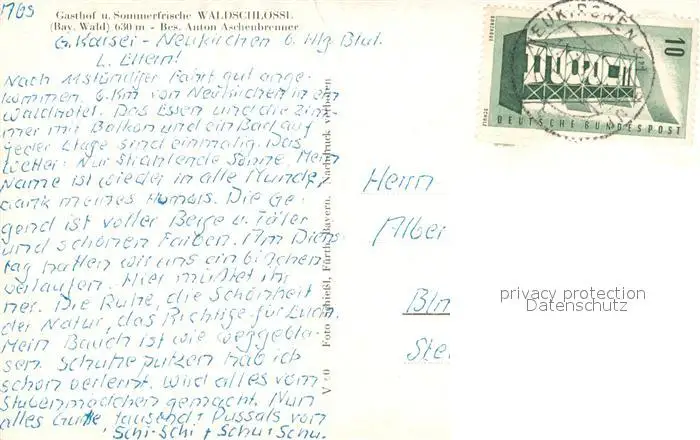 1965
Gasthof u. Sommerfrische WALDSCHLÖSSL
(Bay. Wald) 630 m - Bes. Anton Aschenbrenner
G. Kaiser - Neukirchen b. Hlg. Blut.
L. Eltern!
Nach 11stündiger Fahrt gut ange-
kommen. 6 Km von Neukirchen in ein
Waldhotel. Das Essen und die Zim-
mer mit Balkon und ein Bad auf
jeder Etage sind einmalig. Das
Wetter: Nur strahlende Sonne. Mein
Name ist wieder in alle Munde,
dank meines Humors. Die Ge-
gend ist voller Berge u. Täler
und schönen Farben. Am Diens-
tag hatten wir uns ein bißchen
verlaufen. Hier müßtet ihr
her. Die Ruhe, die Schönheit
der Natur, das Richtige für Euch.
Mein Bauch ist wie weggebla-
sen. Schuhe putzen hab ich
schon verlernt. Wird alles vom
Stubenmädchen gemacht. Nun
alles Gute tausend + Pussals von
Schi-Schi + Schu + Schu.
V 40 Foto Schießl, Fürth/Bayern. Nachdruck verboten
NEUKIRCHEN
EUROPA
10
DEUTSCHE BUNDESPOST
Herrn
Alber
Bln
Ste
privacy protection
Datenschutz